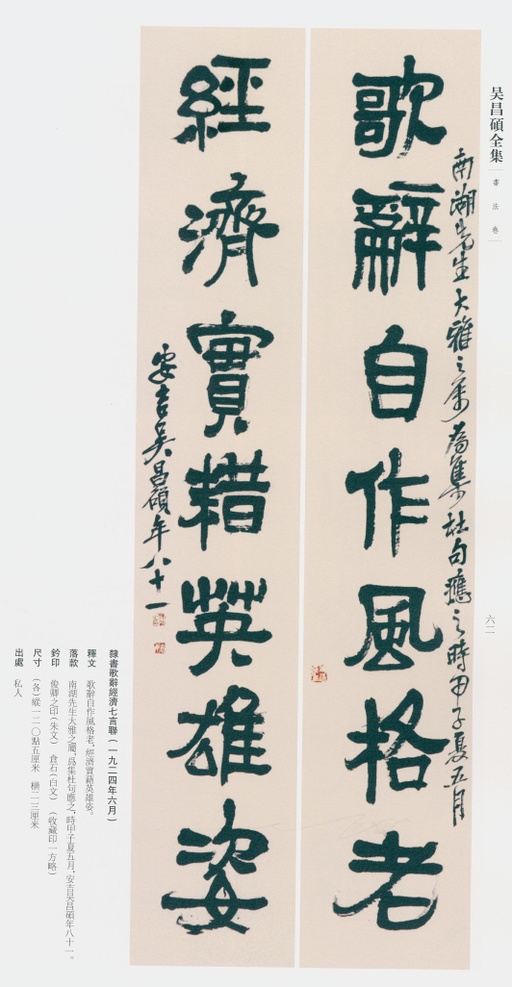 吴昌碩全集
書法卷
六二
南湖先生大雅之属為集杜句應之時甲子夏五月
歌辭自作風格老
經濟實耤英雄姿
安吉吴昌碩年八十一
隸書歌辭經濟七言聯(一九二四年六月)
釋文 歌辭自作風格老,經濟實藉英雄姿。
落款 南湖先生大雅之屬,爲集杜句應之,時甲子夏五月,安吉吴昌碩年八十一。
鈐印 俊卿之印(朱文) 倉石(白文) (收藏印一方略)
尺寸 (各)縱一二〇點五厘米 橫二三厘米
出處 私人